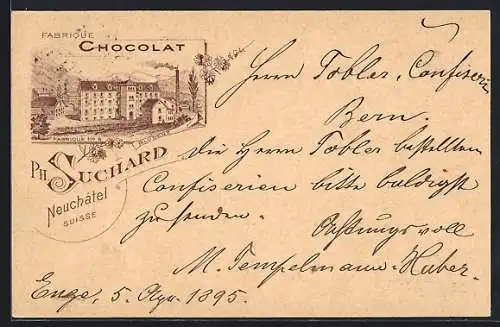 FABRIQUE
CHOCOLAT
FABRIQUE No
PH. SUCHARD
Neuchâtel
SUISSE
Herrn Tobler, Confiserie
Bern.
Die Herrn Tobler bestellten
Confiserien bitte baldigst
zu senden. Achtungsvoll
M. Tempelmann-Huber.
Enge, 5. 1895.